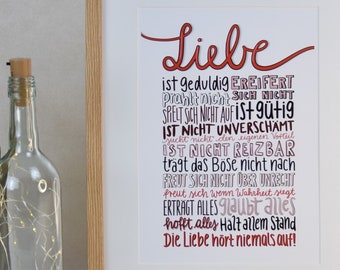 Liebe
ist geduldig EREIFERT
SICH NICHT
Prahlt nicht
SPIELT SICH NICHT AUF ist gütig
IST NICHT UNVERSCHÄMT
sucht nicht den eigenen Vorteil
IST NICHT REIZBAR
trägt das Böse nicht nach
FREUT SICH NICHT ÜBER UNRECHT
freut sich wenn Wahrheit siegt
ERTRÄGT ALLES glaubt alles
hofft alles Hält allem Stand
Die Liebe hört niemals auf!